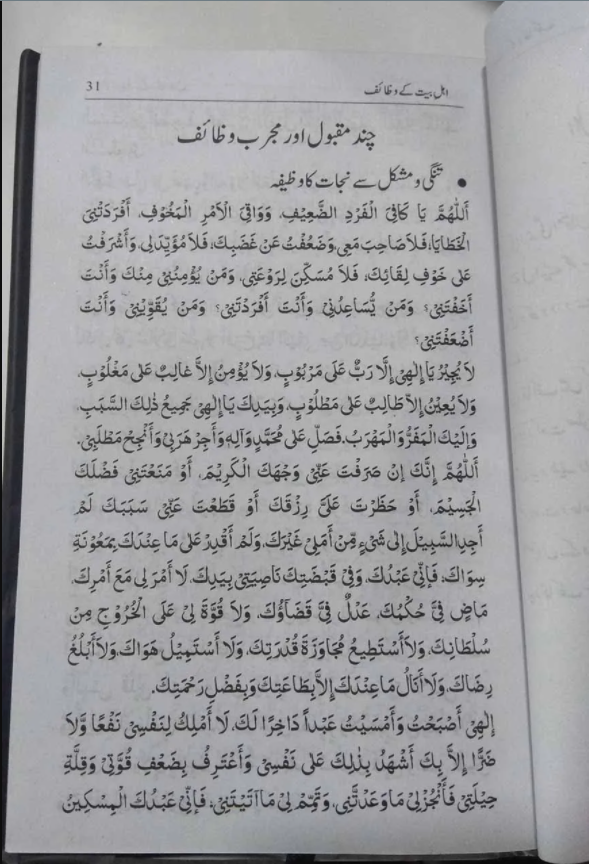 اہل بیت کے وظائف
31
چند مقبول اور مجرب وظائف
• تنگی و مشکل سے نجات کا وظیفہ
اَللّٰهُمَّ يَا كَافِيَ الْفَرْدِ الضَّعِيْفِ، وَوَاقِيَ الْاَمْرِ الْمَخُوْفِ، اَفْرَدَتْنِيْ
الْخَطَايَا، فَلَا صَاحِبَ مَعِيْ، وَضَعُفْتُ عَنْ غَضَبِكَ، فَلَا مُؤَيِّدَ لِيْ، وَاَشْرَفْتُ
عَلٰى خَوْفِ لِقَائِكَ، فَلَا مُسَكِّنَ لِرَوْعَتِيْ، وَمَنْ يُؤْمِنُنِيْ مِنْكَ وَاَنْتَ
اَخَفْتَنِيْ؟ وَمَنْ يُّسَاعِدُنِيْ وَاَنْتَ اَفْرَدْتَنِيْ؟ وَمَنْ يُقَوِّيْنِيْ وَاَنْتَ
اَضْعَفْتَنِيْ؟
لَا يُجِيْرُ يَا اِلٰهِيْ اِلَّا رَبٌّ عَلٰى مَرْبُوْبٍ، وَلَا يُؤْمِنُ اِلَّا غَالِبٌ عَلٰى مَغْلُوْبٍ،
وَلَا يُعِيْنُ اِلَّا طَالِبٌ عَلٰى مَطْلُوْبٍ، وَبِيَدِكَ يَا اِلٰهِيْ جَمِيْعُ ذٰلِكَ السَّبَبِ،
وَاِلَيْكَ الْمَفَرُّ وَالْمَهْرَبُ، فَصَلِّ عَلٰى مُحَمَّدٍ وَآلِهٖ وَاَجِرْ هَرَبِيْ وَاَنْجِحْ مَطْلَبِيْ.
اَللّٰهُمَّ اِنَّكَ اِنْ صَرَفْتَ عَنِّيْ وَجْهَكَ الْكَرِيْمَ، اَوْ مَنَعْتَنِيْ فَضْلَكَ
الْجَسِيْمَ، اَوْ حَظَرْتَ عَلَيَّ رِزْقَكَ اَوْ قَطَعْتَ عَنِّيْ سَبَبَكَ لَمْ
اَجِدِ السَّبِيْلَ اِلٰى شَيْءٍ مِّنْ اَمَلِيْ غَيْرَكَ، وَلَمْ اَقْدِرْ عَلٰى مَا عِنْدَكَ بِمَعُوْنَةِ
سِوَاكَ، فَاِنِّيْ عَبْدُكَ، وَفِيْ قَبْضَتِكَ نَاصِيَتِيْ بِيَدِكَ، لَا اَمْرَ لِيْ مَعَ اَمْرِكَ،
مَاضٍ فِيَّ حُكْمُكَ، عَدْلٌ فِيَّ قَضَاؤُكَ، وَلَا قُوَّةَ لِيْ عَلَى الْخُرُوْجِ مِنْ
سُلْطَانِكَ، وَلَا اَسْتَطِيْعُ مُجَاوَزَةَ قُدْرَتِكَ، وَلَا اَسْتَمِيْلُ هَوَاكَ، وَلَا اَبْلُغُ
رِضَاكَ، وَلَا اَنَالُ مَا عِنْدَكَ اِلَّا بِطَاعَتِكَ وَبِفَضْلِ رَحْمَتِكَ.
اِلٰهِيْ اَصْبَحْتُ وَاَمْسَيْتُ عَبْداً دَاخِرًا لَكَ، لَا اَمْلِكُ لِنَفْسِيْ نَفْعًا وَّلَا
ضَرًّا اِلَّا بِكَ اَشْهَدُ بِذٰلِكَ عَلٰى نَفْسِيْ وَاَعْتَرِفُ بِضَعْفِ قُوَّتِيْ وَقِلَّةِ
حِيْلَتِيْ فَاَنْجِزْ لِيْ مَا وَعَدْتَّنِيْ، وَتَمِّمْ لِيْ مَا آتَيْتَنِيْ، فَاِنِّيْ عَبْدُكَ الْمِسْكِيْنُ